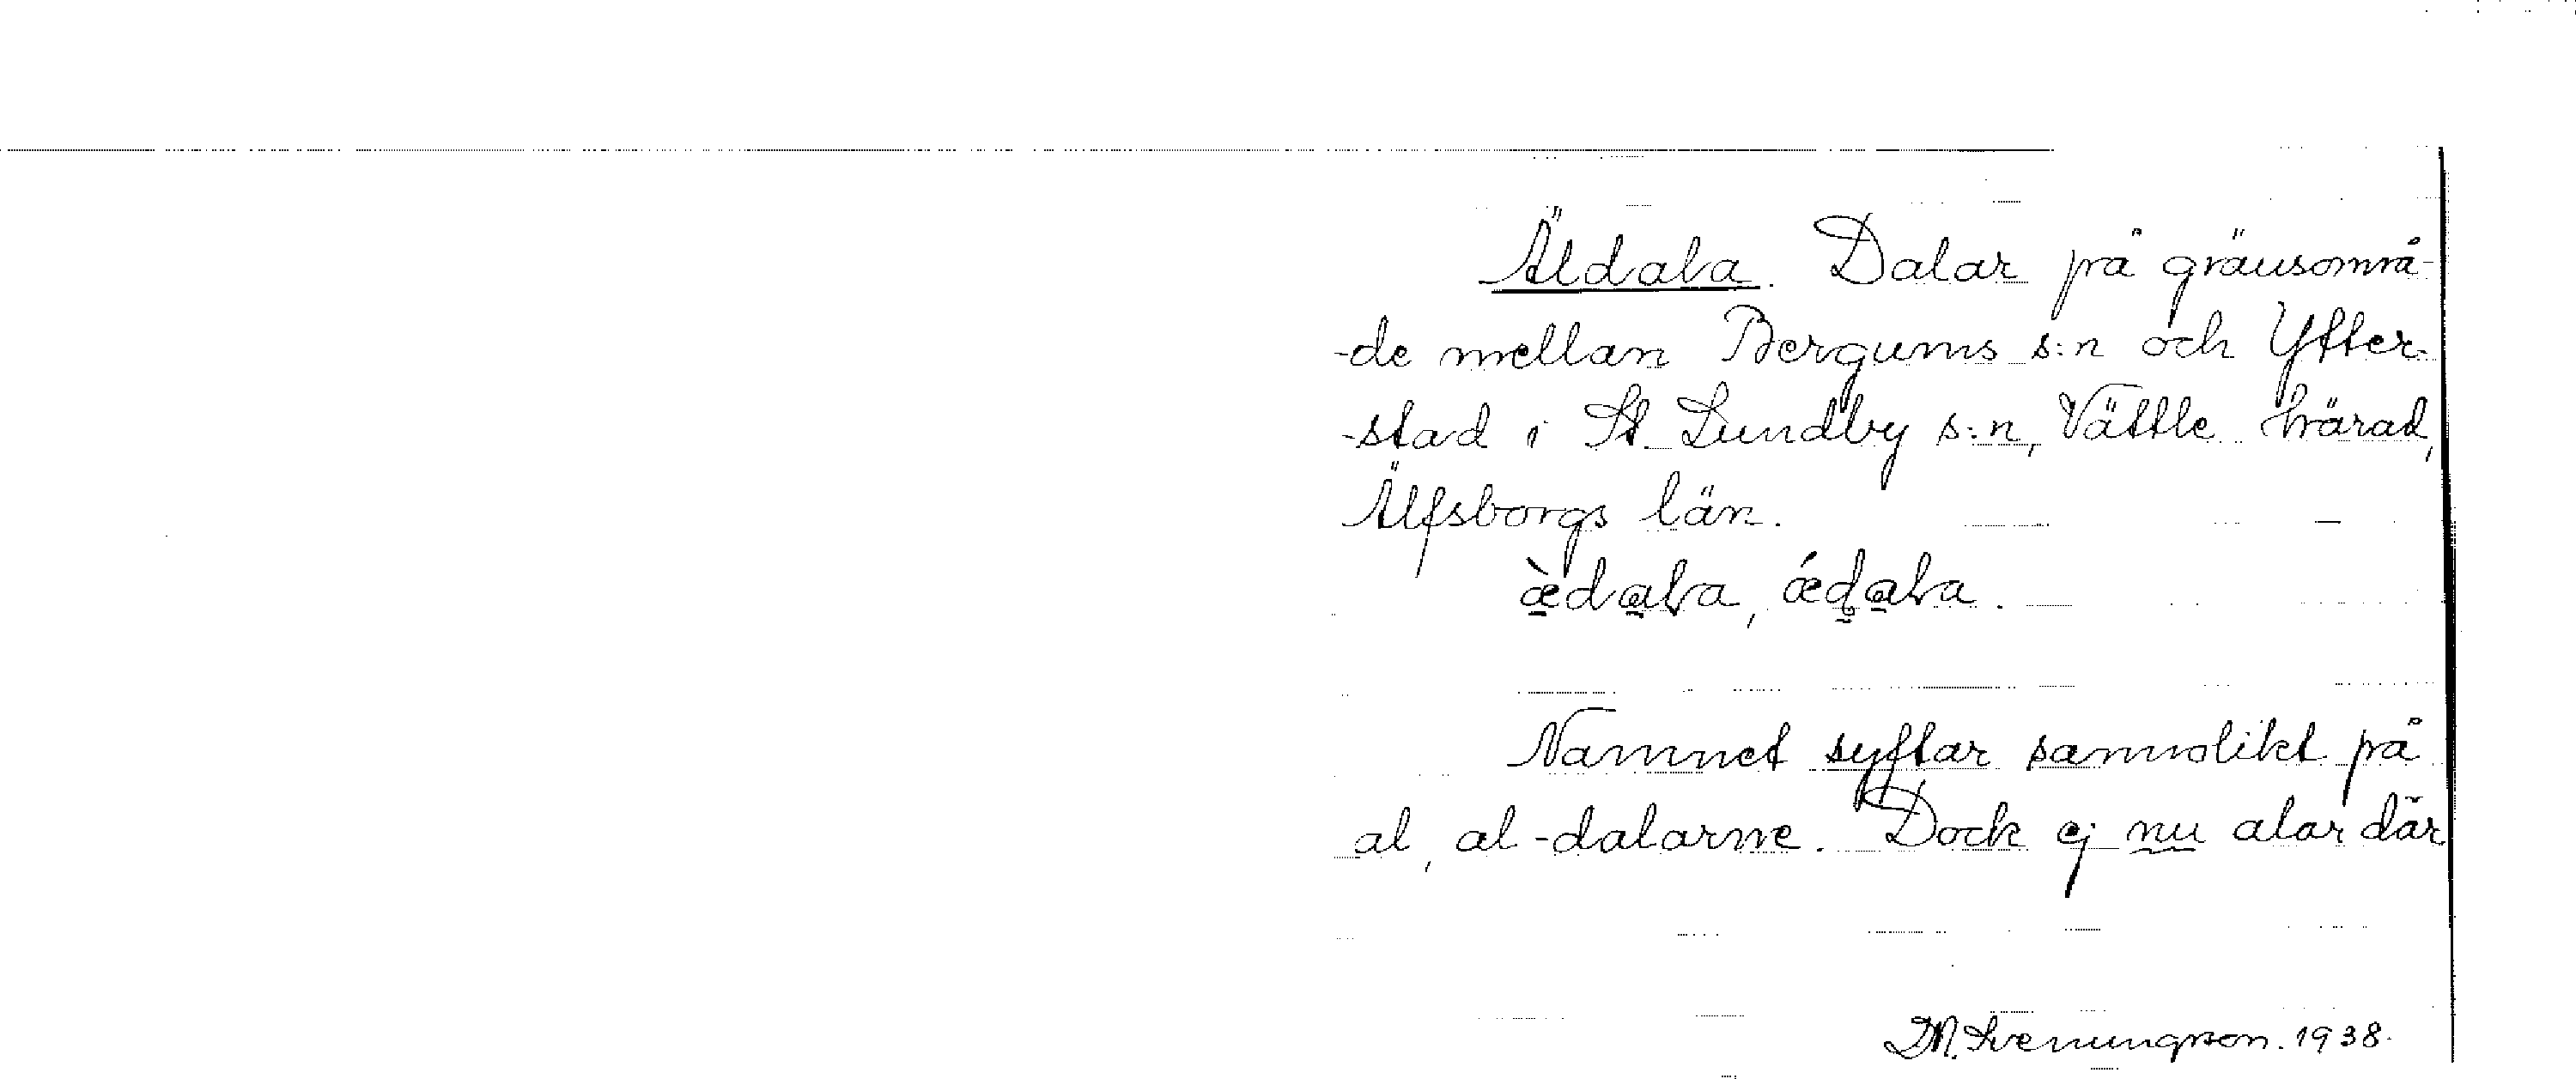 Äldala. Dalar på gränsområ-
-de mellan Bergums s:n och Yfter-
-stad i St. Lundby s:n, Vättle härad,
Älfsborgs län.
æ̀dala, ǽdala.
Namnet syftar sannolikt på
al, al-dalarne. Dock ej nu alar där
D.N. Svenungson. 1938.